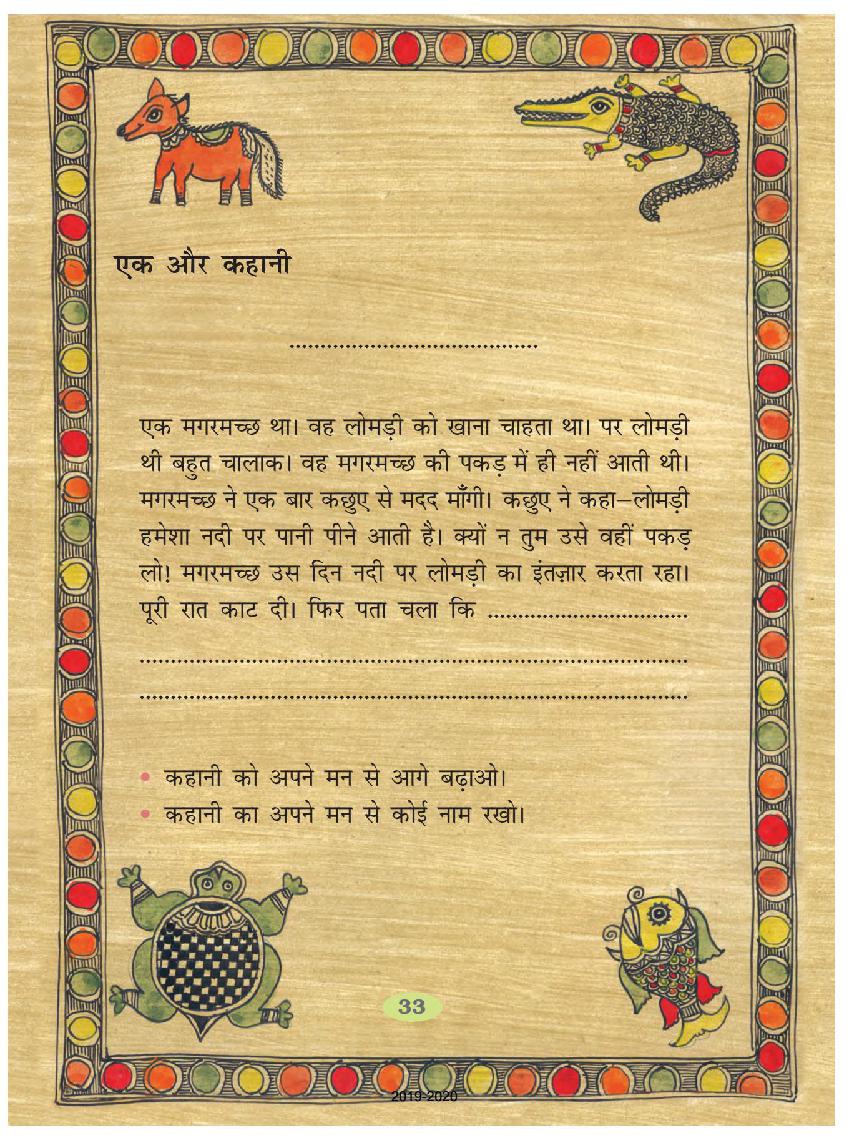 एक और कहानी
.............................................
एक मगरमच्छ था। वह लोमड़ी को खाना चाहता था। पर लोमड़ी
थी बहुत चालाक। वह मगरमच्छ की पकड़ में ही नहीं आती थी।
मगरमच्छ ने एक बार कछुए से मदद माँगी। कछुए ने कहा–लोमड़ी
हमेशा नदी पर पानी पीने आती है। क्यों न तुम उसे वहीं पकड़
लो! मगरमच्छ उस दिन नदी पर लोमड़ी का इंतज़ार करता रहा।
पूरी रात काट दी। फिर पता चला कि ....................................
....................................................................................................
....................................................................................................
• कहानी को अपने मन से आगे बढ़ाओ।
• कहानी का अपने मन से कोई नाम रखो।
33
2019-2020